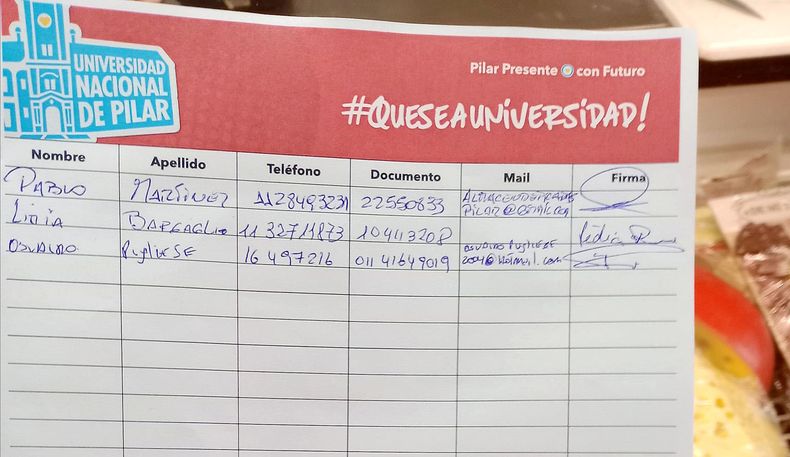 UNIVERSIDAD
NACIONAL
DE PILAR
Pilar Presente con Futuro
#QUESEAUNIVERSIDAD!
Nombre Apellido Teléfono Documento Mail Firma
PABLO MARTINEZ 1128493231 22550833
PILAR@GMAIL.COM
LIDIA 11 32711873 10443208
OSVALDO PugliESE 16 497216 011 41649019 OSVALDO PUGLIESE
2004@hotmail.com